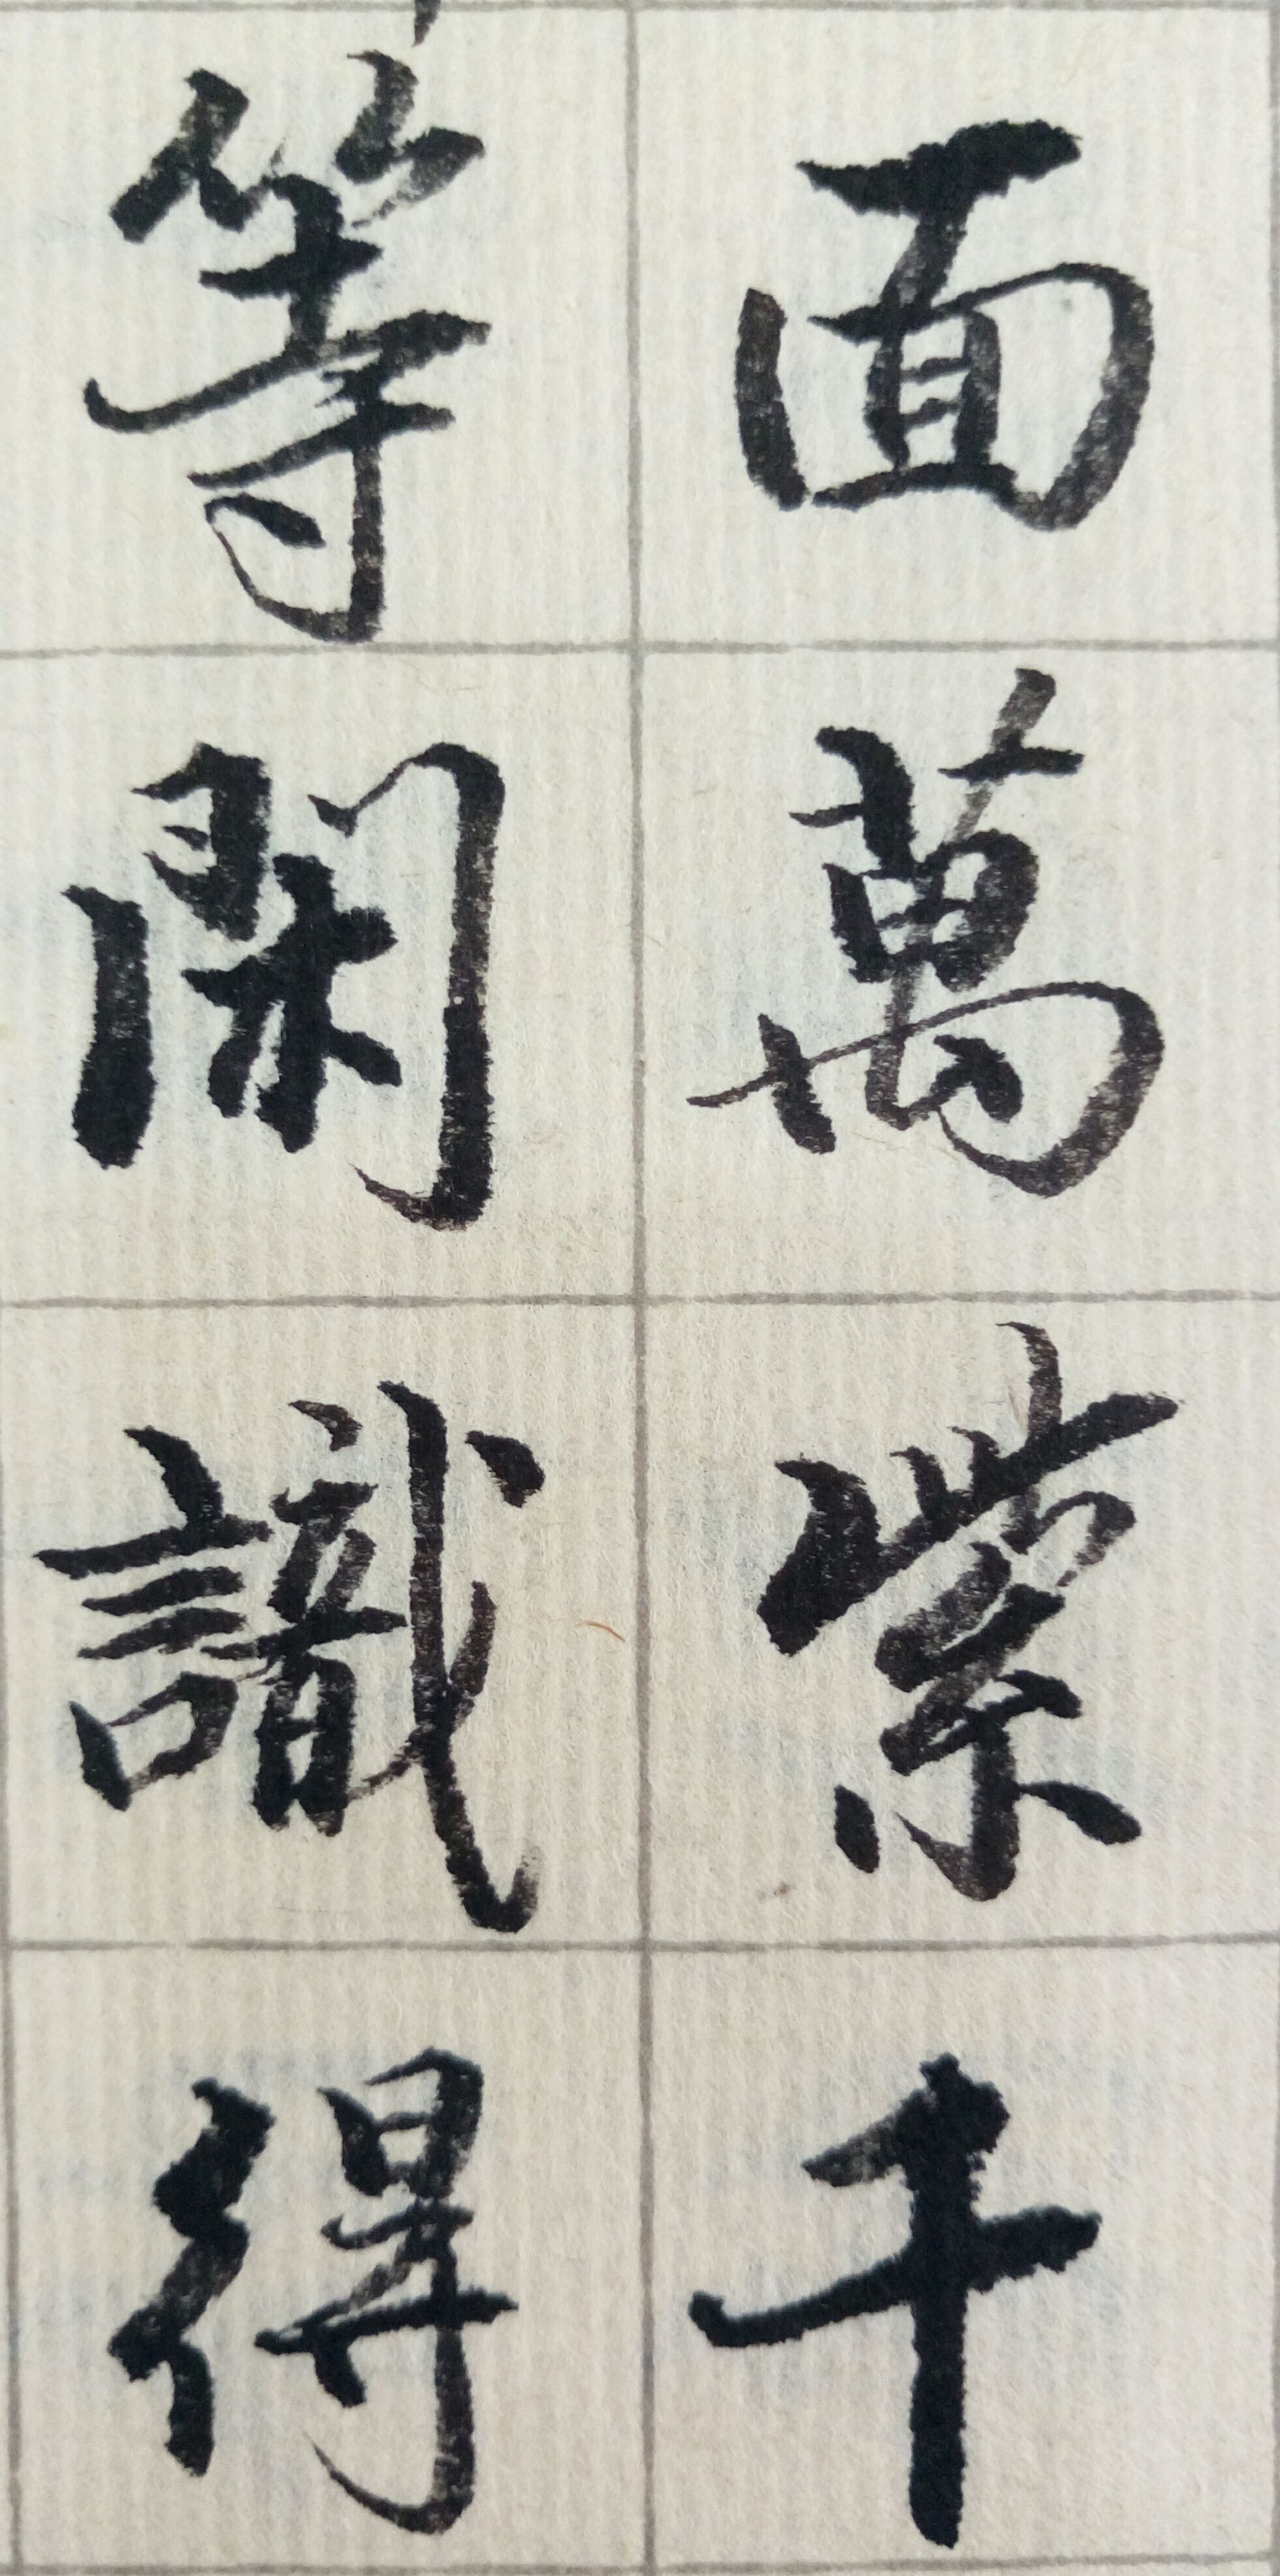 等閑識得
面萬紫千